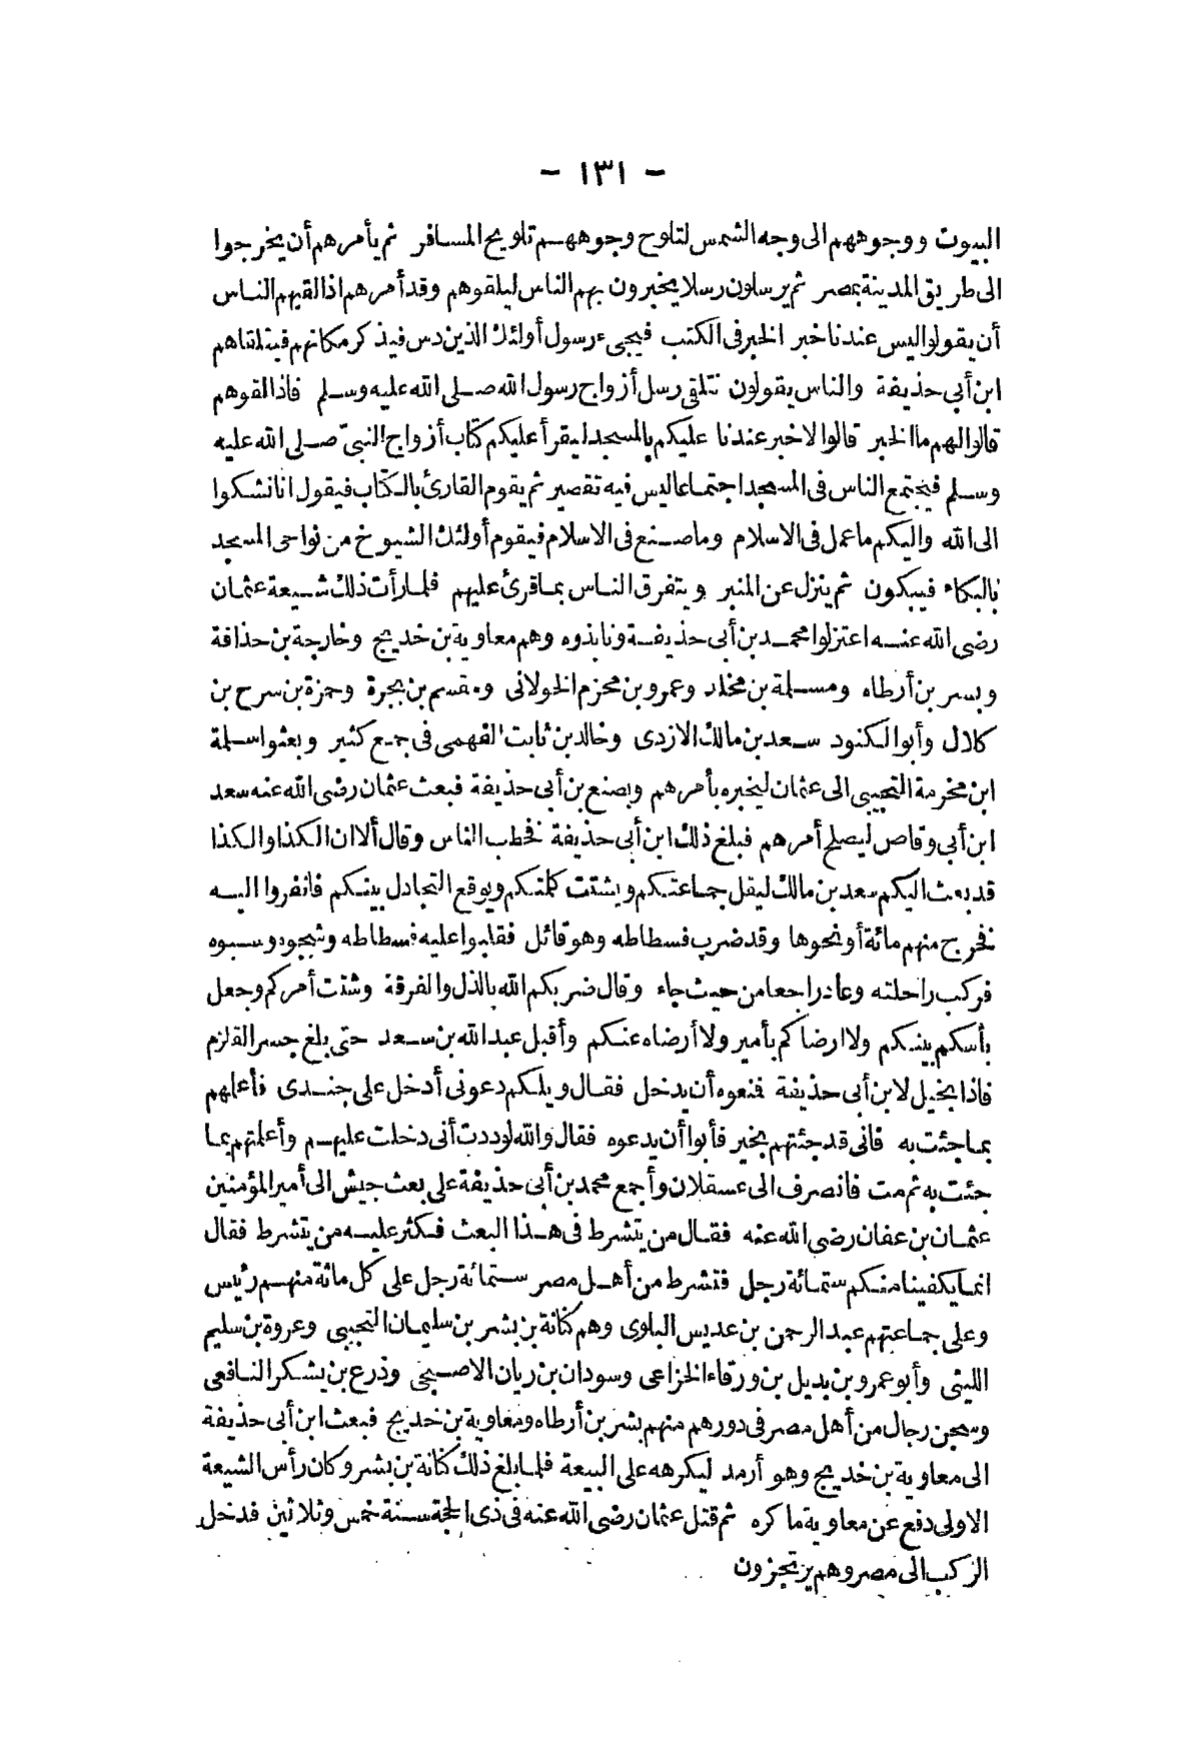 - ١٣١ -
البيوت ووجوههم الى وجه الشمس لتلوح وجوههم تلويح المسافر ثم يأمرهم أن يخرجوا
الى طريق المدينة بمصر ثم يرسلون رسلا يخبرون بهم الناس ليلقوهم وقد أمرهم اذا لقيهم الناس
أن يقولوا ليس عندنا خبر الخبر فى الكتب فيجىء رسول أولئك الذين دس فيذكر مكانهم فيتلقاهم
ابن أبى حذيفة والناس يقولون نتلقى رسل أزواج رسول الله صلى الله عليه وسلم فاذا لقوهم
قالوا لهم ما الخبر قالوا لا خبر عندنا عليكم بالمسجد ليقرأ عليكم كتاب أزواج النبىّ صلى الله عليه
وسلم فيجتمع الناس فى المسجد اجتماعا ليس فيه تقصير ثم يقوم القارئ بالكتاب فيقول انا نشكوا
الى الله واليكم ما عمل فى الاسلام وما صنع فى الاسلام فيقوم أولئك الشيوخ من نواحى المسجد
بالبكاء فيبكون ثم ينزل عن المنبر ويتفرق الناس بما قرئ عليهم فلما رأت ذلك شيعة عثمان
رضى الله عنه اعتزلوا محمد بن أبى حذيفة ونابذوه وهم معاوية بن خديج وخارجة بن حذافة
وبسر بن أرطاه ومسلمة بن مخلد وعمرو بن محزم الخولانى ومقسم بن بجرة وحمزة بن سرح بن
كلال وأبو الكنود سعد بن مالك الازدى وخالد بن ثابت الفهمى فى جمع كثير وبعثوا سلمة
ابن مخرمة التجيبى الى عثمان ليخبره بأمرهم وبصنع بن أبى حذيفة فبعث عثمان رضى الله عنه سعد
ابن أبى وقاص ليصلح أمرهم فبلغ ذلك ابن أبى حذيفة فخطب الناس وقال ألا ان الكذا والكذا
قد بعث اليكم سعد بن مالك ليفل جماعتكم ويشتت كلمتكم ويوقع التجادل بينكم فانفروا اليه
فخرج منهم مائة أو نحوها وقد ضرب فسطاطه وهو قائل فقلبوا عليه فسطاطه وشجوه وسبوه
فركب راحلته وعاد راجعا من حيث جاء وقال ضربكم الله بالذل والفرقة وشتت أمركم وجعل
بأسكم بينكم ولا ارضاكم بأمير ولا أرضاه عنكم وأقبل عبد الله بن سعد حتى بلغ جسر القلزم
فاذا بخيل لابن أبى حذيفة فنعوه أن يدخل فقال ويلكم دعونى أدخل على جندى فأعلمهم
بما جئت به فانى قد جئتهم بخير فأبوا أن يدعوه فقال والله لوددت أنى دخلت عليهم وأعلمتهم بما
جئت به ثم مت فانصرف الى عسقلان وأجمع محمد بن أبى حذيفة على بعث جيش الى أمير المؤمنين
عثمان بن عفان رضى الله عنه فقال من يتشرط فى هذا البعث فكثر عليه من يتشرط فقال
انما يكفينا منكم ستمائة رجل فتشرط من أهل مصر ستمائة رجل على كل مائة منهم رئيس
وعلى جماعتهم عبد الرحمن بن عديس البلوى وهم كنانة بن بشر بن سليمان التجيبى وعروة بن سليم
الليثى وأبو عمرو بن بديل بن ورقاء الخزاعى وسودان بن ريان الاصبحى وذرع بن يشكر النافعى
وسجن رجال من أهل مصر فى دورهم منهم بشر بن أرطاه ومعاوية بن خديج فبعث ابن أبى حذيفة
الى معاوية بن خديج وهو أرمد ليكرهه على البيعة فلما بلغ ذلك كنانة بن بشر وكان رأس الشيعة
الاولى دفع عن معاوية ما كره ثم قتل عثمان رضى الله عنه فى ذى الحجة سنة خمس وثلاثين فدخل
الركب الى مصر وهم يرتجزون